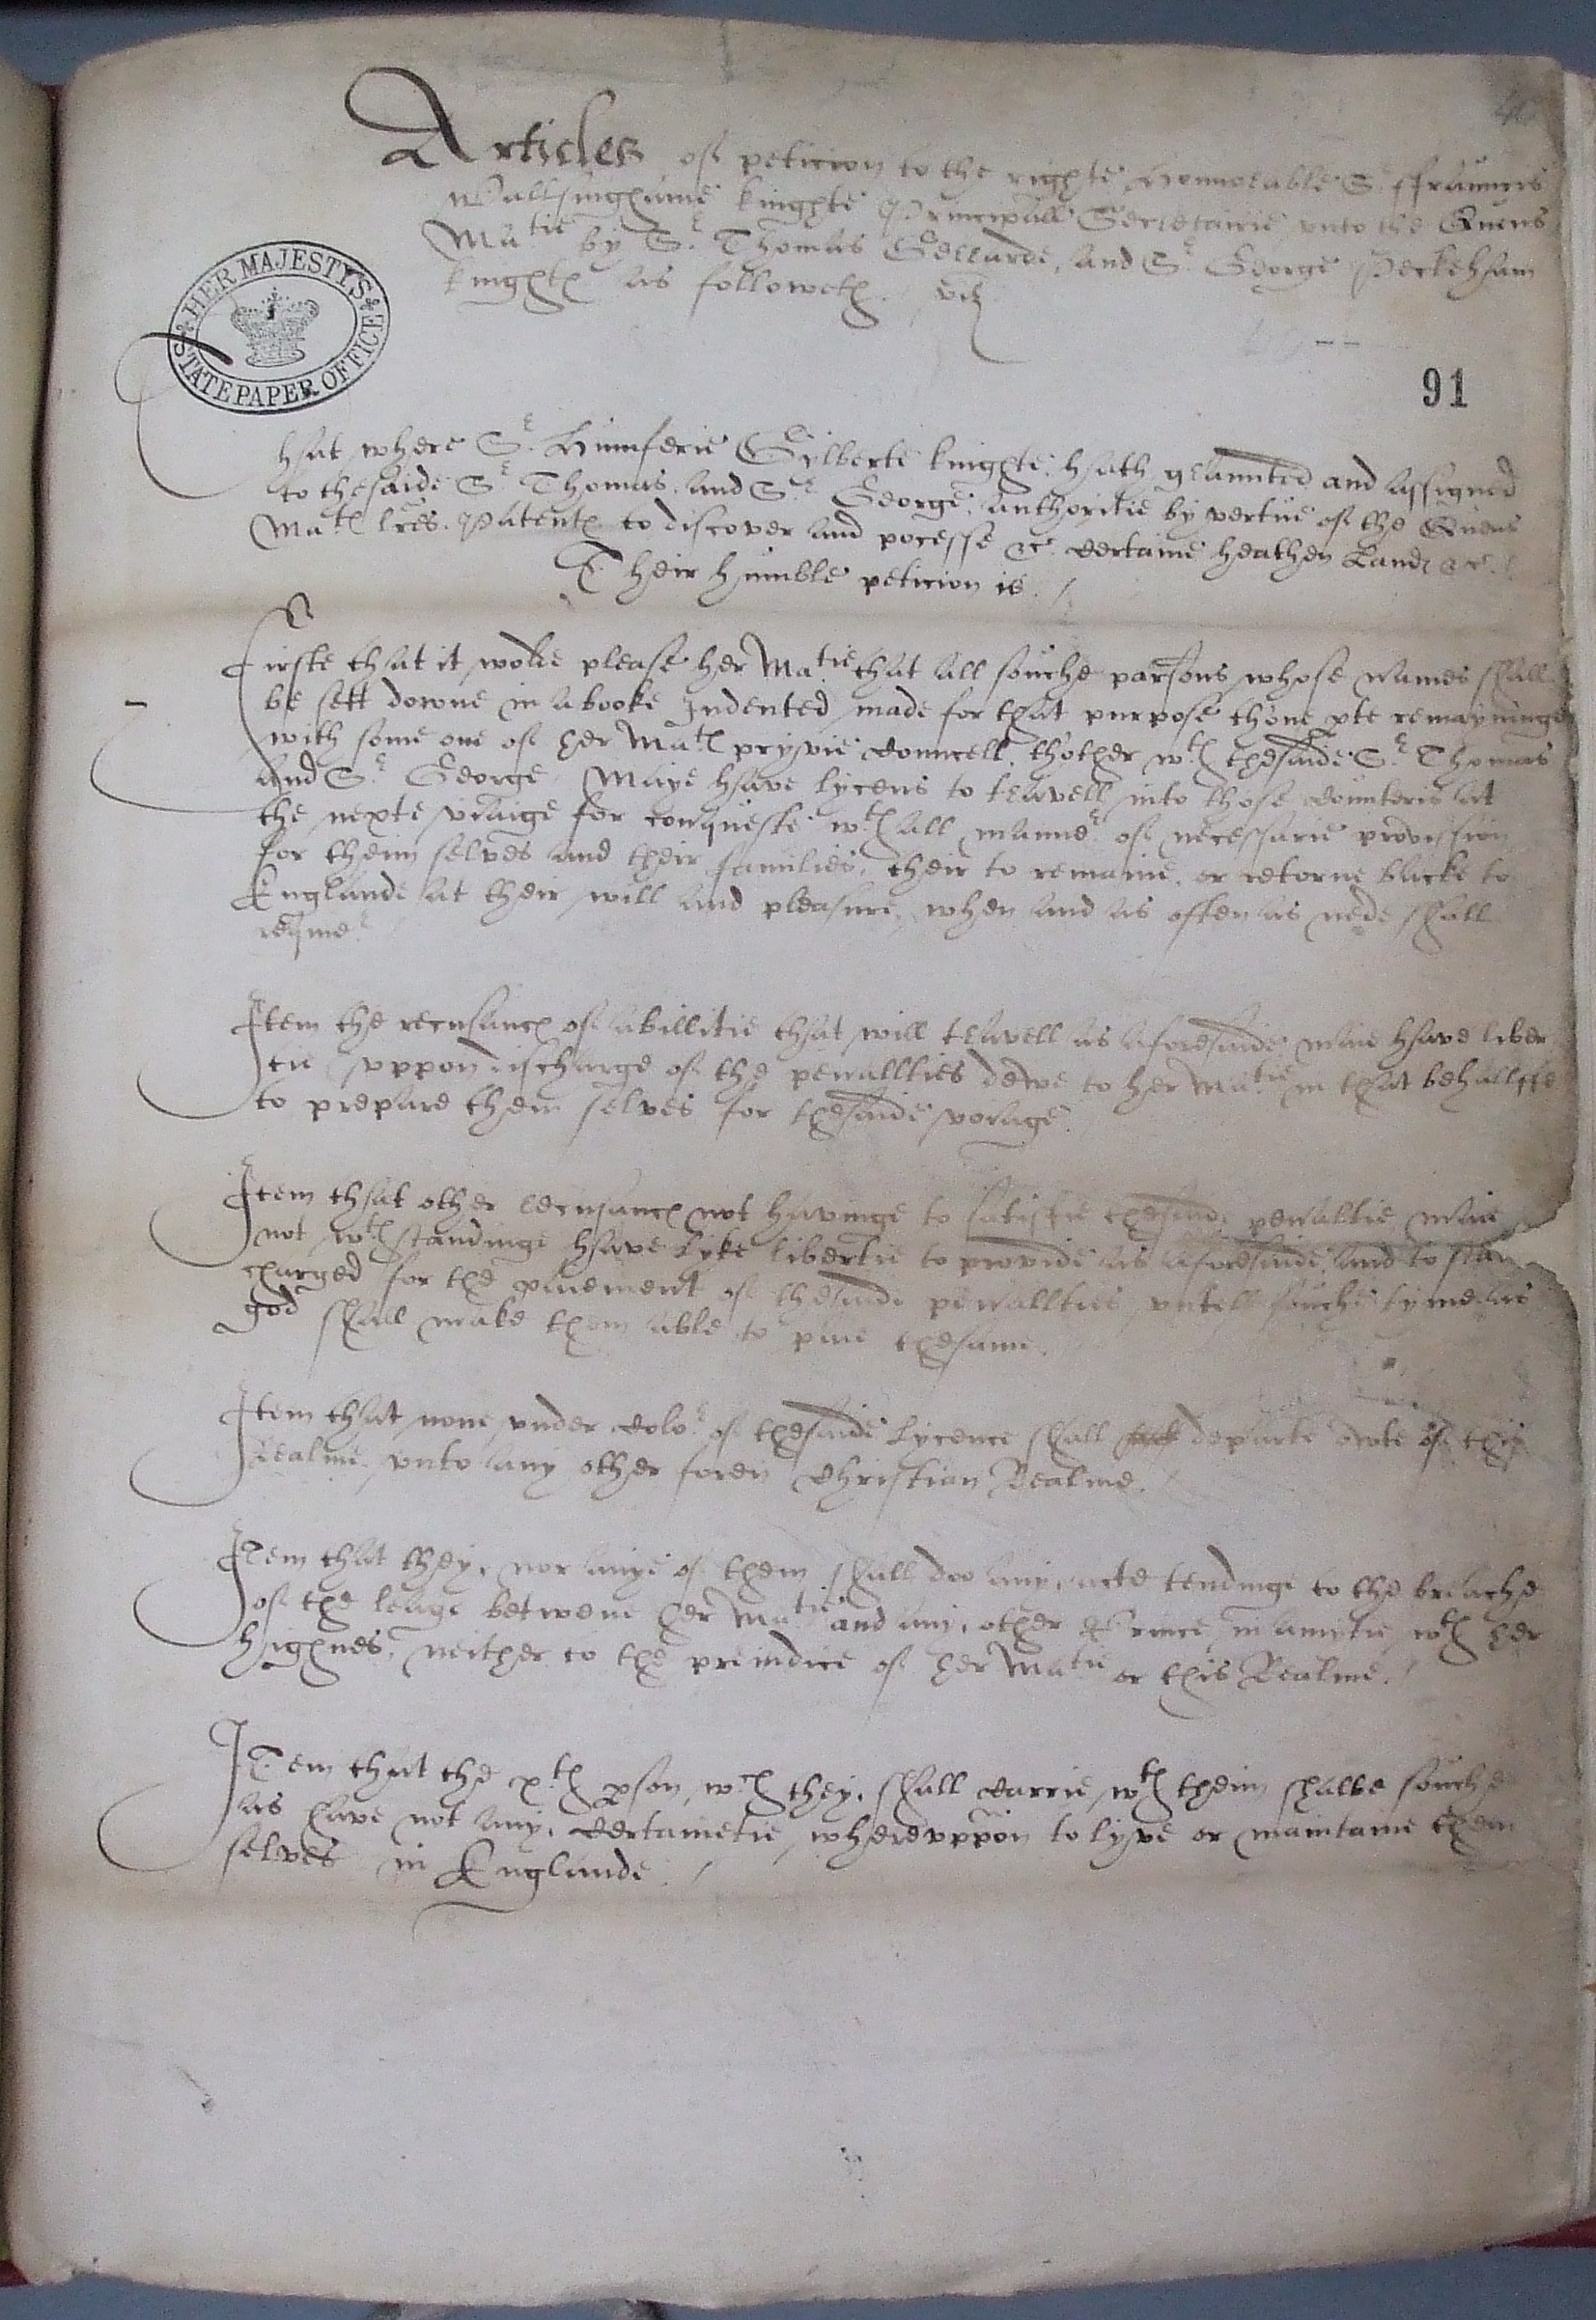 Articles of peticion to the righte honnorable Sr ffrauncis
Wallsinghame knighte Principall Secretairie unto the Quens
Matie by Sr Thomas Gerrarde, and Sr George Peckeham
knightes as followeth. viz
HER MAJESTY'S STATE PAPER OFFICE
91
That where Sr Humferie Gylberte knighte, hath graunted and assigned
to thesaide Sr Thomas, and Sr George, authoritie by vertue of the Quens
Mates lres Patentes to discover and pocesse &c certaine heathen Landes &c.
Their humble peticion is.
Firste that it wolde please her Matie that all souche parsons whose names shall
be sett downe in a booke Indented made for that purpose thone pte remayninge
with some one of her Mates pryvie councell, thother wth thesaide Sr Thomas
and Sr George Maye have lycens to travell into those counteris at
the nexte viaige for conqueste wth all manner of necessarie provission
for theim selves and their families, their to remaine, or retorne backe to
Englande at their will and pleasure, when and as often as nede shall
require
Item the recusantes of abillitie that will travell as aforesaide maie have liber
tie uppon discharge of the penallties dewe to her Matie in that behallffe
to prepare them selves for thesaide voiage.
Item that other recusantes not havinge to satisfie thesaide penaltie maie
not wth standinge have lyke libertie to provide as aforesaide, and to stan
charged for the paiement of thesaide penallties untell souche tyme as
god shall make them able to paie thesame.
Item that none under color of thesaide Lycence shall departe owte of this
Realme unto any other foren Christian Realme.
Item that they, nor anye of them shall doo any acte tendinge to the breache
of the leage betwene her Matie and any other Prince in amytie wth her
highnes, neither to the preiudice of her Matie or this Realme.
ITem that the xth pson wch they shall carrie wth theim shalbe souche
as have not any certainetie whereuppon to lyve or maintaine them
selves in Englande.